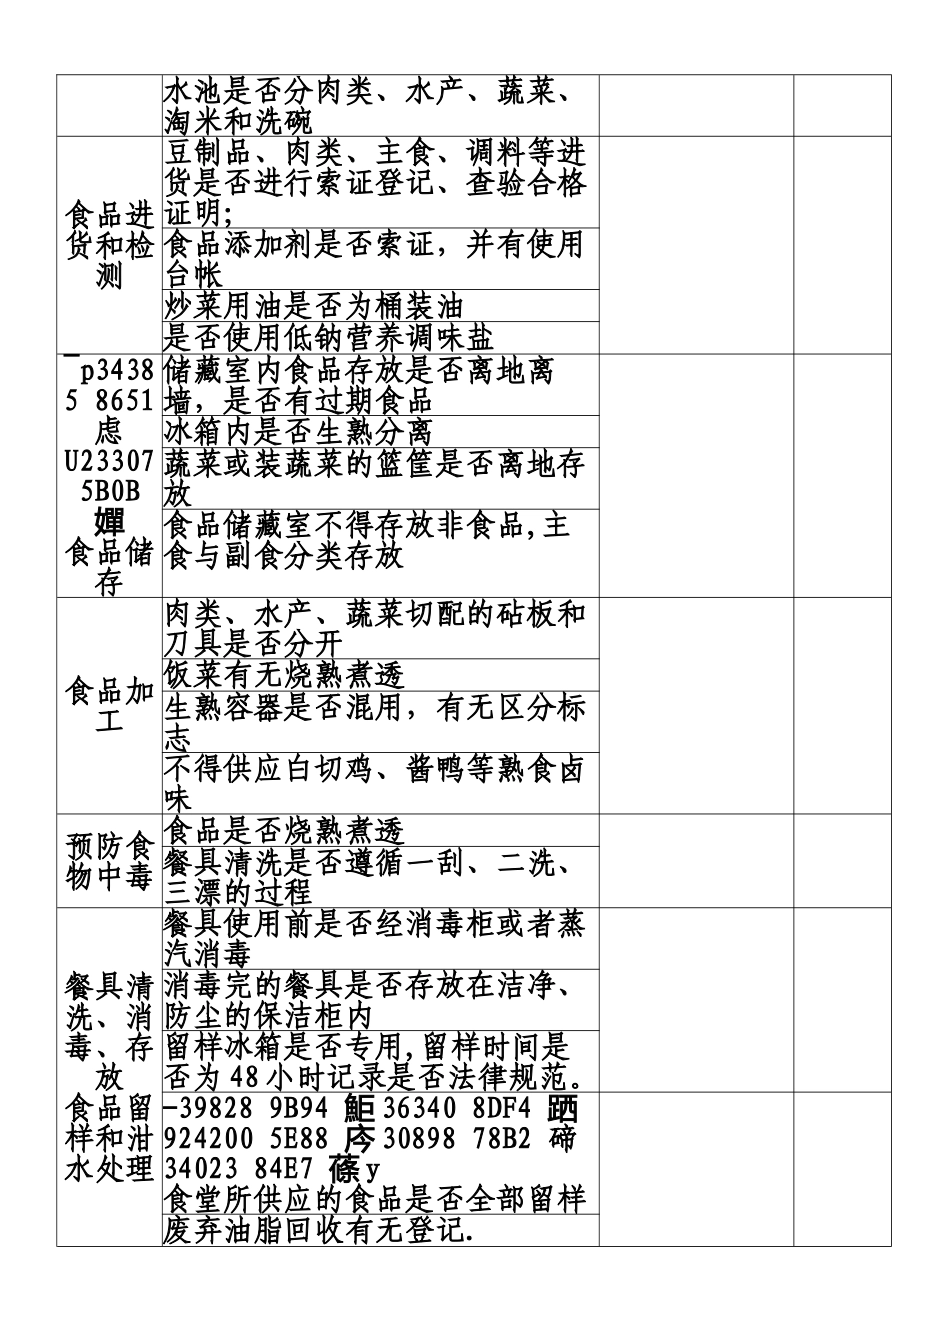 水池是否分肉类、水产、蔬菜、
淘米和洗碗
食品进
货和检
测
豆制品、肉类、主食、调料等进
货是否进行索证登记、查验合格
证明;
食品添加剂是否索证，并有使用
台帐
炒菜用油是否为桶装油
是否使用低钠营养调味盐
p3438
5 8651
虑
U23307
5B0B
嬋
食品储
存
储藏室内食品存放是否离地离
墙，是否有过期食品
冰箱内是否生熟分离
蔬菜或装蔬菜的篮筐是否离地存
放
食品储藏室不得存放非食品,主
食与副食分类存放
食品加
工
肉类、水产、蔬菜切配的砧板和
刀具是否分开
饭菜有无烧熟煮透
生熟容器是否混用，有无区分标
志
不得供应白切鸡、酱鸭等熟食卤
味
预防食
物中毒
食品是否烧熟煮透
餐具清洗是否遵循一刮、二洗、
三漂的过程
餐具清
洗、消
毒、存
放
餐具使用前是否经消毒柜或者蒸
汽消毒
消毒完的餐具是否存放在洁净、
防尘的保洁柜内
留样冰箱是否专用,留样时间是
否为 48 小时记录是否法律规范。
食品留
样和泔
水处理
-39828 9B94 鮔 36340 8DF4 跴
924200 5E88 庈 30898 78B2 碲
34023 84E7 蓧 y
食堂所供应的食品是否全部留样
废弃油脂回收有无登记.